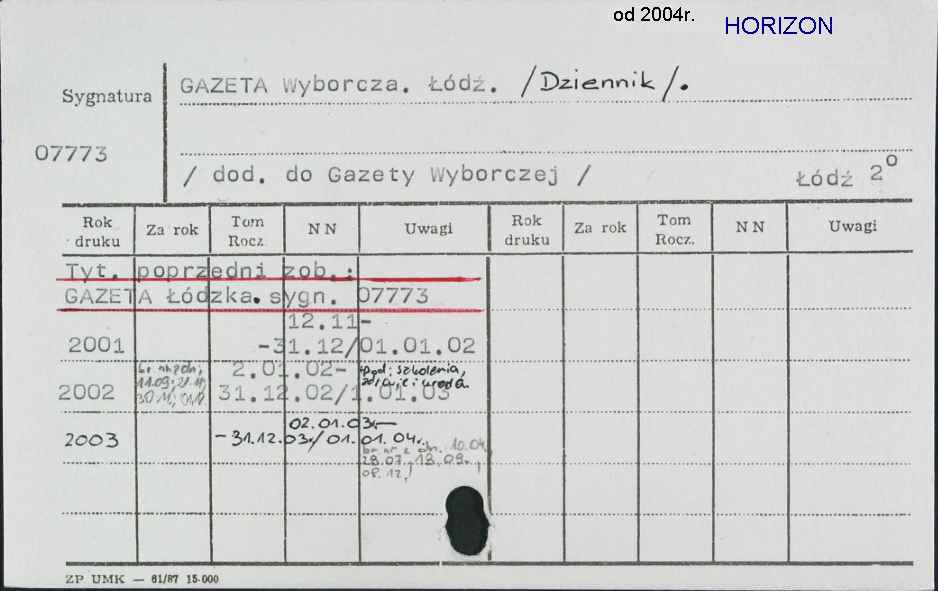 od 2004r.
HORIZON
Sygnatura
GAZETA Wyborcza. Łódź. /Dziennik/.
07773
/ dod. do Gazety Wyborczej /
Łódź 2°
Rok druku Za rok Tom Rocz. NN Uwagi Rok druku Za rok Tom Rocz. NN Uwagi
Tyt. poprzedni zob.:
GAZETA Łódzka. sygn. 07773
12.11-
2001 -31.12/01.01.02
2.01.02-
2002 31.12.02/1.01.03
szkolenia,
i uroda
02.01.03.-
2003 -31.12.03r/01.01.04r.
10.04
28.07., 13.09.,
08.12,
ZP UMK — 61/87 15.000